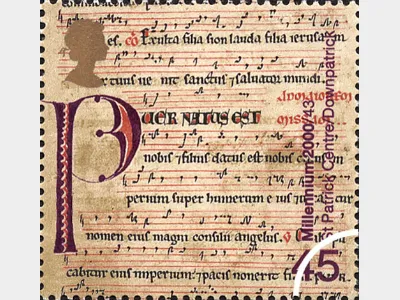 es. Exulta filia sion lauda filia ierusalem
ue nit sanctus ⁊ saluator mundi.
PUER NATUS EST
nobis ⁊ filius datus est nobis
perium super humerum e ius ⁊
nomen eius magni consilii angelus.
cabitur eius imperium: ⁊ pacis non erit
Millennium 2000/43
St Patrick Centre/Downpatrick
45